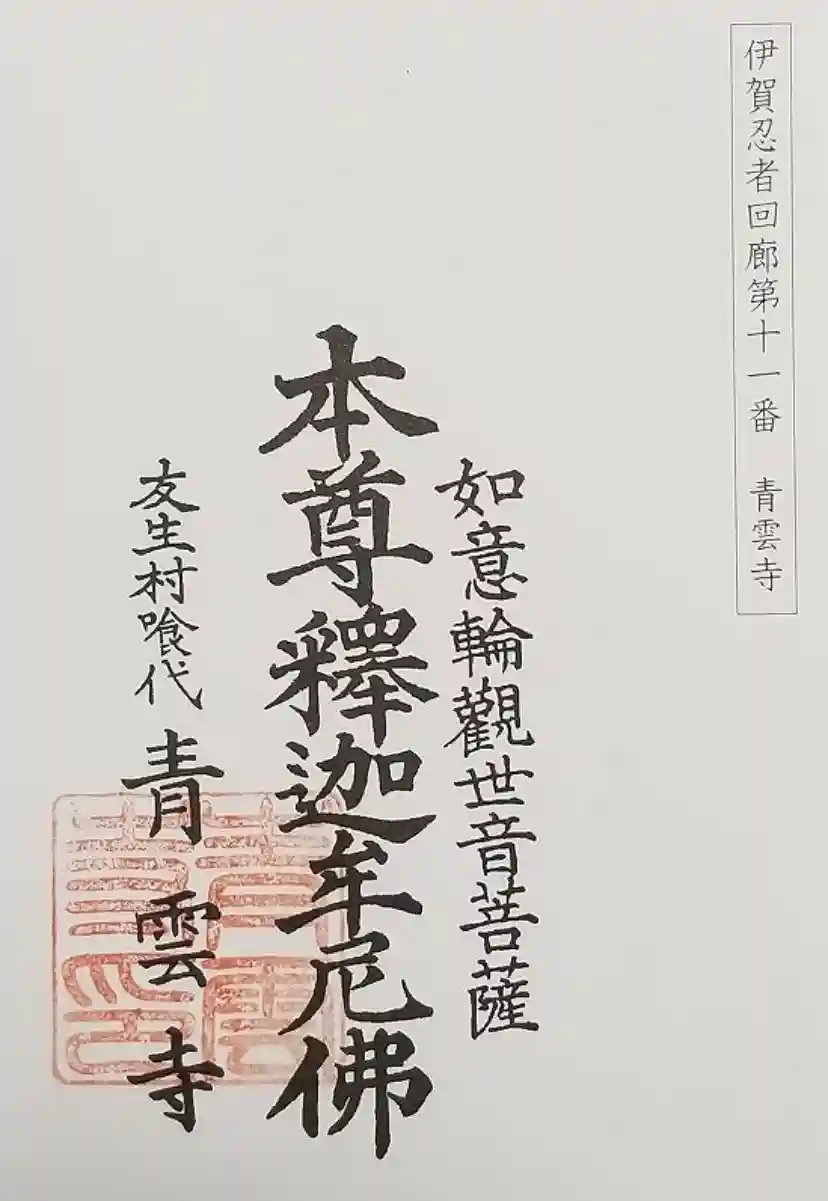 伊賀忍者回廊第十一番　青雲寺
如意輪觀世音菩薩
本尊釋迦牟尼佛
友生村喰代　青雲寺